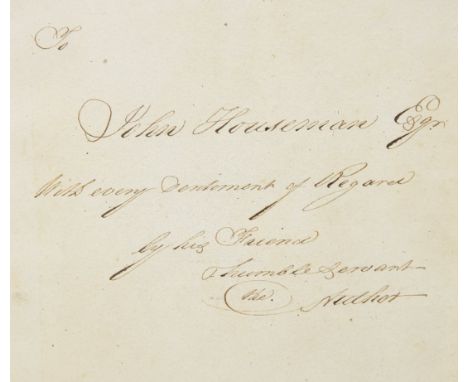 To
John Houseman Esqr.
With every Sentiment of Regard
by his Friend
& humble Servant
The. Author